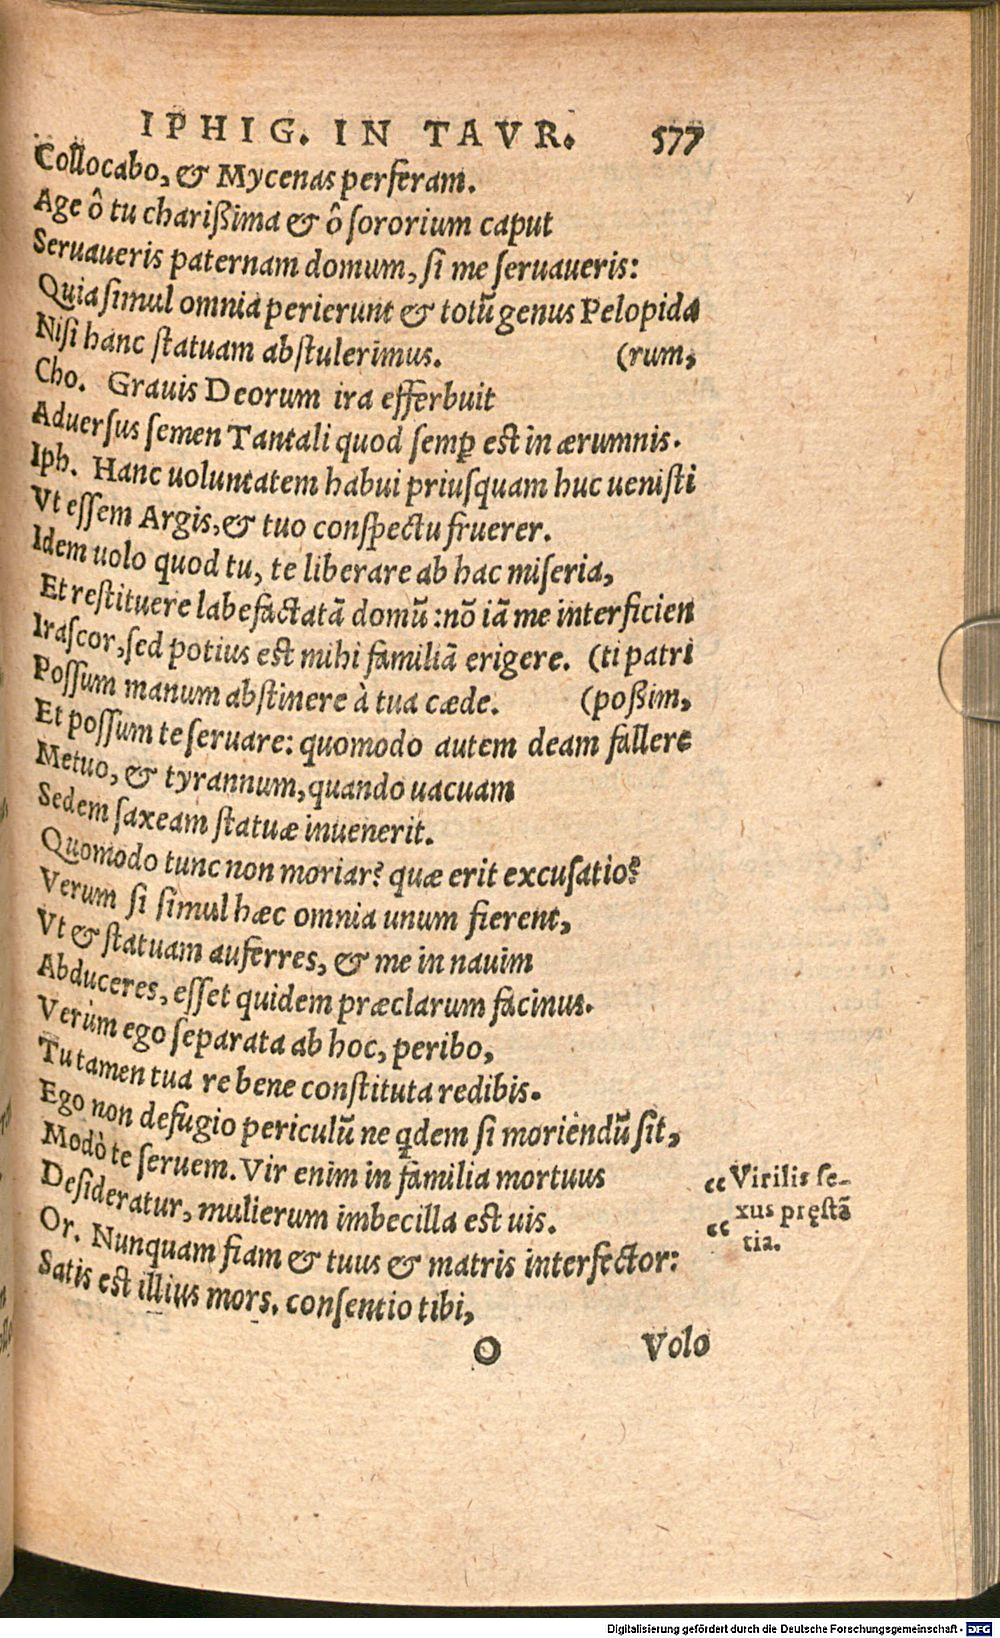 IPHIG. IN TAVR. 577
Collocabo, & Mycenas perferam.
Age ô tu charißima & ô ſororium caput
Seruaueris paternam domum, ſi me ſeruaueris:
Quia ſimul omnia perierunt & totũ genus Pelopida
Niſi hanc ſtatuam abſtulerimus. (rum,
Cho. Grauis Deorum ira efferbuit
Aduerſus ſemen Tantali quod ſemp̱ eſt in ærumnis.
Iph. Hanc uoluntatem habui priuſquam huc ueniſti
Vt eſſem Argis, & tuo conſpectu fruerer.
Idem uolo quod tu, te liberare ab hac miſeria,
Et reſtituere labefactatã domũ: nõ iã me interficien
Iraſcor, ſed potius eſt mihi familiã erigere. (ti patri
Poſſum manum abſtinere à tua cæde. (poßim,
Et poſſum te ſeruare: quomodo autem deam fallere
Metuo, & tyrannum, quando uacuam
Sedem ſaxeam ſtatuæ inuenerit.
Quomodo tunc non moriar? quæ erit excuſatio?
Verum ſi ſimul hæc omnia unum fierent,
Vt & ſtatuam auferres, & me in nauim
Abduceres, eſſet quidem præclarum facinus.
Verùm ego ſeparata ab hoc, peribo,
Tu tamen tua re bene conſtituta redibis.
Ego non defugio periculũ ne q̱dem ſi moriendũ ſit,
Modò te ſeruem. Vir enim in familia mortuus
“Virilis ſe-
Deſideratur, mulierum imbecilla eſt uis.
xus pręſtã
“tia.
Or. Nunquam fiam & tuus & matris interfector:
Satis eſt illius mors. conſentio tibi,
O Volo
Digitalisierung gefördert durch die Deutsche Forschungsgemeinschaft - DFG